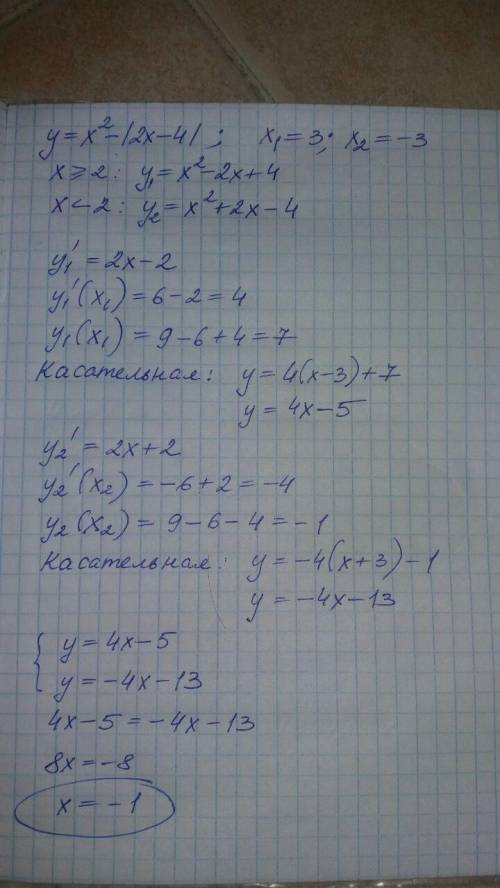 y = x² - |2x - 4| ; x₁ = 3; x₂ = -3
x ⩾ 2 : y₁ = x² - 2x + 4
x < 2 : y₂ = x² + 2x - 4
y₁' = 2x - 2
y₁'(x₁) = 6 - 2 = 4
y₁(x₁) = 9 - 6 + 4 = 7
Касательная: y = 4(x - 3) + 7
y = 4x - 5
y₂' = 2x + 2
y₂'(x₂) = -6 + 2 = -4
y₂(x₂) = 9 - 6 - 4 = -1
Касательная: y = -4(x + 3) - 1
y = -4x - 13
{ y = 4x - 5
y = -4x - 13
4x - 5 = -4x - 13
8x = -8
x = -1